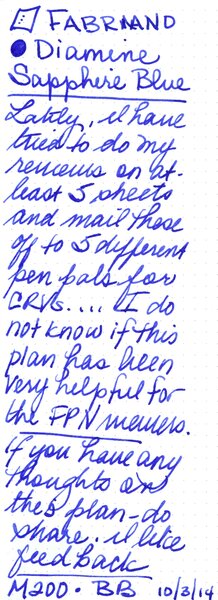 FABRIANO
Diamine
Sapphire Blue
Lately, I have
tried to do my
reviews on at-
least 5 sheets
and mail these
off to 5 different
pen pals for
CRVs.... I do
not know if this
plan has been
very helpful for
the FPN viewers.
if you have any
thoughts on
this plan-do
share. I like
feed back
M200 • BB 10/3/14